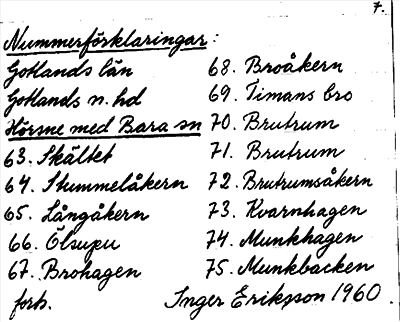 7.
Nummerförklaringar:
Gotlands län
Gotlands n. hd
Hörsne med Bara sn
63. Skältet
64. Stummelåkern
65. Långåkern
66. Ölsupu
67. Brohagen
forts.
68. Broåkern
69. Timans bro
70. Brutrum
71. Brutrum
72. Brutrumsåkern
73. Kvarnhagen
74. Munkhagen
75. Munkbacken
Inger Eriksson 1960.